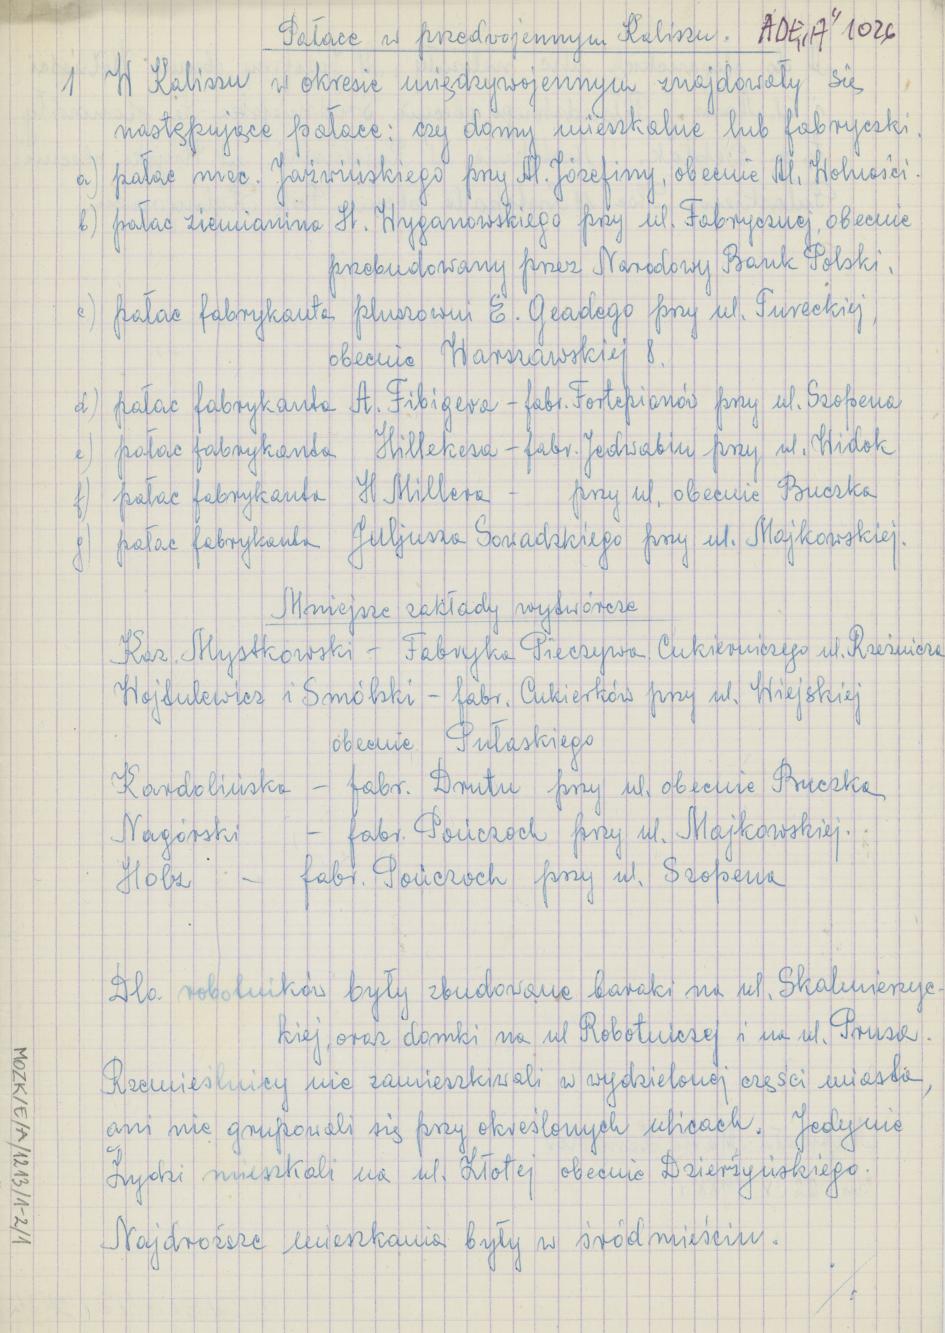 Pałace w przedwojennym Kaliszu. ADE„A" 1026
1 W Kaliszu w okresie międzywojennym znajdowały się
następujące pałace: czy domy mieszkalne lub fabryczki.
a) pałac mec. Jaźwińskiego przy Al. Józefiny, obecnie Al. Wolności.
b) pałac ziemianina St. Wyganowskiego przy ul. Fabrycznej, obecnie
przebudowany przez Narodowy Bank Polski.
c) pałac fabrykanta pluszowni E. Geadego przy ul. Tureckiej,
obecnie Warszawskiej 8.
d) pałac fabrykanta A. Fibigera – fabr. Fortepianów przy ul. Szopena
e) pałac fabrykanta Hillekesa – fabr. Jedwabiu przy ul. Widok
f) pałac fabrykanta H Millera – przy ul. obecnie Buczka
g) pałac fabrykanta Juljusza Sowadzkiego przy ul. Majkowskiej.
Mniejsze zakłady wytwórcze
Kaz. Mystkowski – Fabryka Pieczywa Cukierniczego ul. Rzeźnicza
Wojtulewicz i Smólski – fabr. Cukierków przy ul. Wiejskiej
obecnie Pułaskiego
Kardolińska – fabr. Drutu przy ul. obecnie Buczka
Nagórski – fabr. Pończoch przy ul. Majkowskiej.
Holz – fabr. Pończoch przy ul. Szopena
Dla robotników były zbudowane baraki na ul. Skalmierzyc-
kiej, oraz domki na ul Robotniczej i na ul. Prusa.
Rzemieślnicy nie zamieszkiwali w wydzielonej części miasta,
ani nie grupowali się przy określonych ulicach. Jedynie
Żydzi mieszkali na ul. Złotej obecnie Dzierżyńskiego.
Najdroższe mieszkania były w śródmieściu.
MOZK/E/A/1213/1-2/1